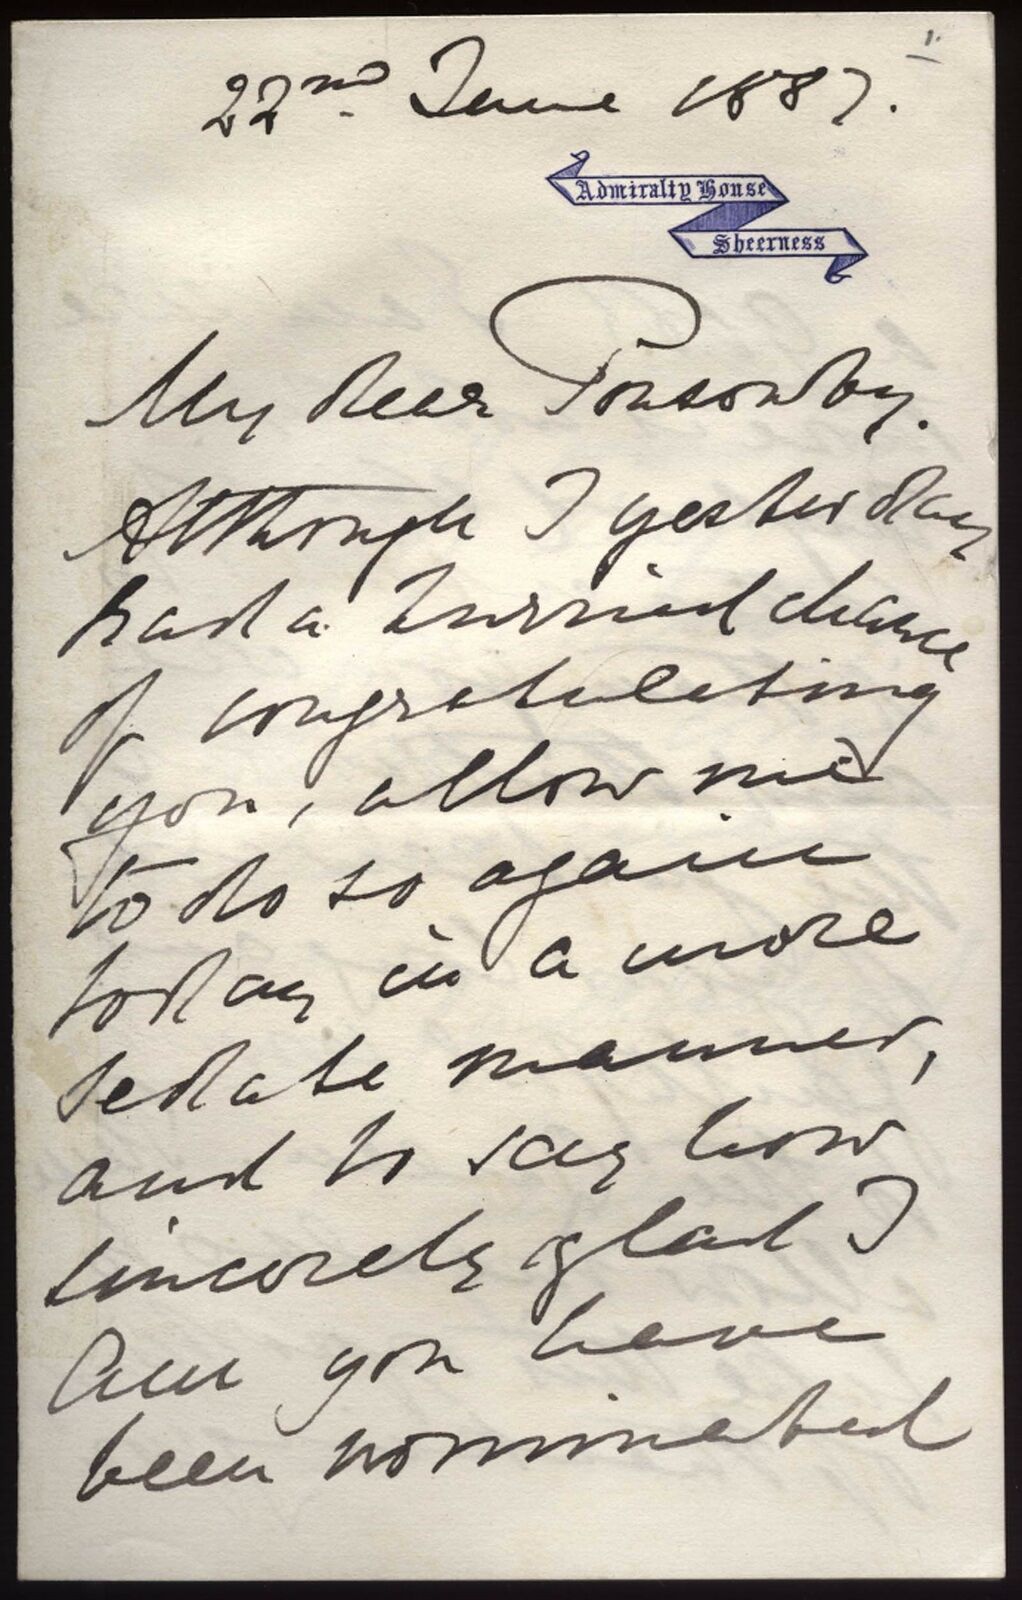 1.
22nd June 1887.
Admiralty House
Sheerness
My dear Ponsonby.
Although I yesterday
had a hurried chance
of congratulating
you, allow me
to do so again
today in a more
sedate manner,
and to say how
sincerely glad I
am you have
been nominated